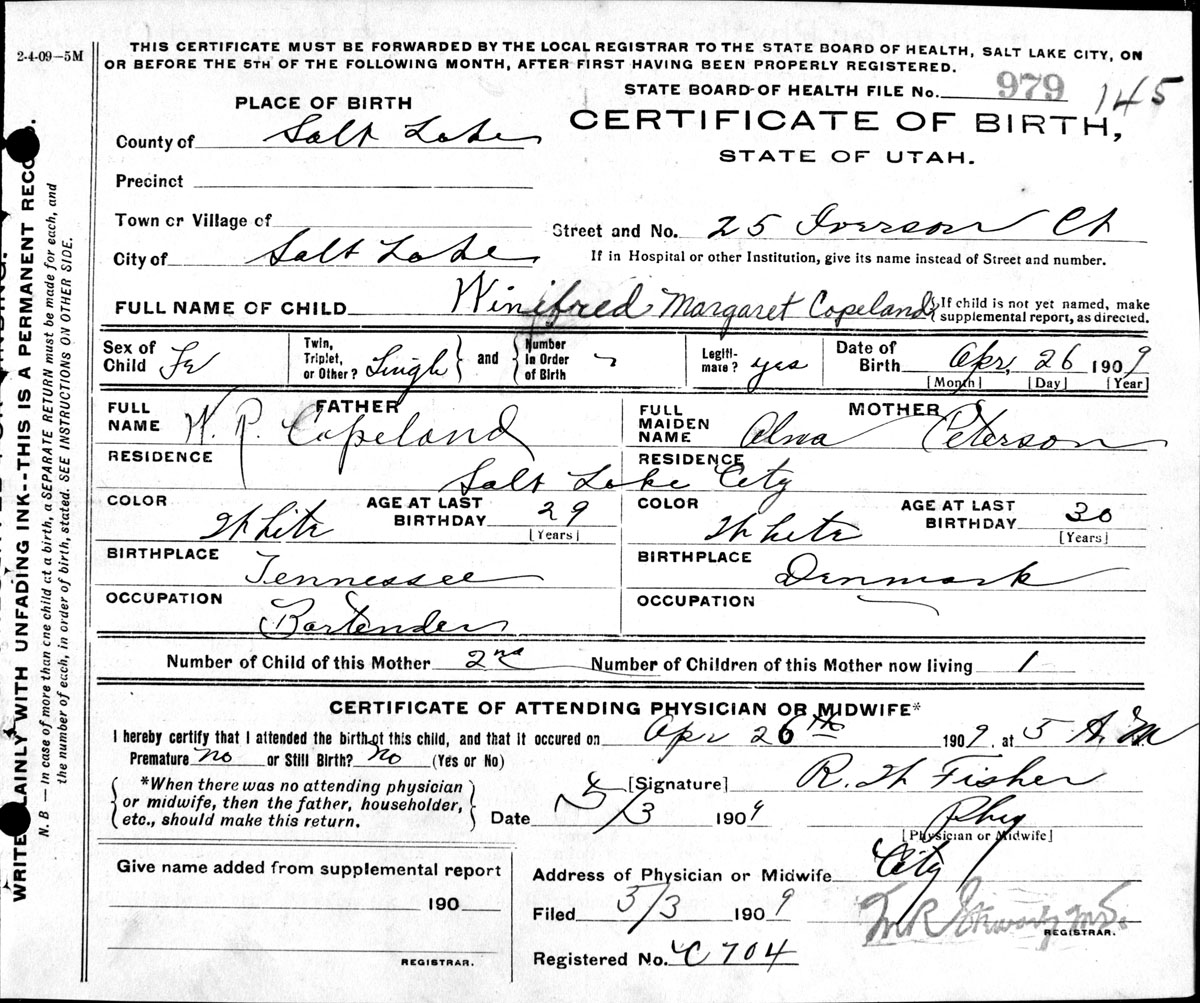 2-4-09—5M
THIS CERTIFICATE MUST BE FORWARDED BY THE LOCAL REGISTRAR TO THE STATE BOARD OF HEALTH, SALT LAKE CITY, ON
OR BEFORE THE 5TH OF THE FOLLOWING MONTH, AFTER FIRST HAVING BEEN PROPERLY REGISTERED.
STATE BOARD OF HEALTH FILE No. 979 145
PLACE OF BIRTH
CERTIFICATE OF BIRTH,
STATE OF UTAH.
County of Salt Lake
Precinct
Town or Village of
Street and No. 25 Iverson Ct
City of Salt Lake
If in Hospital or other Institution, give its name instead of Street and number.
FULL NAME OF CHILD Winifred Margaret Copeland {If child is not yet named, make
supplemental report, as directed.
Sex of Child Fe
Twin, Triplet, or Other? Single and Number in Order of Birth
Legiti-mate? yes
Date of Birth Apr. 26 1909
[Month] [Day] [Year]
FATHER
FULL NAME W. P. Copeland
MOTHER
FULL MAIDEN NAME Alma Peterson
RESIDENCE RESIDENCE
Salt Lake City
COLOR White AGE AT LAST BIRTHDAY 29 [Years]
COLOR White AGE AT LAST BIRTHDAY 30 [Years]
BIRTHPLACE Tennessee
BIRTHPLACE Denmark
OCCUPATION Bartender
OCCUPATION
Number of Child of this Mother 2nd Number of Children of this Mother now living 1
CERTIFICATE OF ATTENDING PHYSICIAN OR MIDWIFE*
I hereby certify that I attended the birth of this child, and that it occured on Apr 26th 1909, at 5 A.M
Premature No or Still Birth? No (Yes or No)
*When there was no attending physician
or midwife, then the father, householder,
etc., should make this return.
[Signature] R. W Fisher
Date 5/3 1909
Phy
[Physician or Midwife]
Give name added from supplemental report
190
REGISTRAR.
Address of Physician or Midwife City
Filed 5/3 1909
REGISTRAR.
Registered No. C704
WRITE PLAINLY WITH UNFADING INK--THIS IS A PERMANENT RECORD.
N. B — In case of more than one child at a birth, a SEPARATE RETURN must be made for each, and
the number of each, in order of birth, stated. SEE INSTRUCTIONS ON OTHER SIDE.